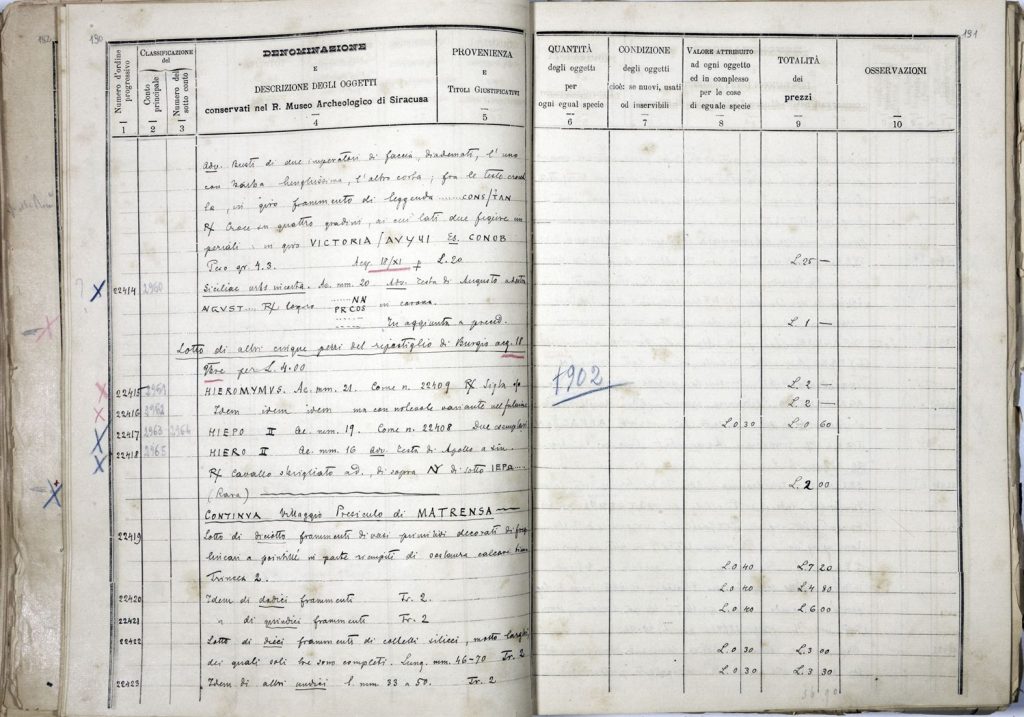 190
191
Numero d'ordine progressivo
CLASSIFICAZIONE del
Conto principale
Numero del sotto conto
DENOMINAZIONE
E
DESCRIZIONE DEGLI OGGETTI
conservati nel R. Museo Archeologico di Siracusa
PROVENIENZA
E
TITOLI GIUSTIFICATIVI
QUANTITÀ
degli oggetti
per
ogni egual specie
CONDIZIONE
degli oggetti
cioè: se nuovi, usati
od inservibili
VALORE ATTRIBUITO
ad ogni oggetto
ed in complesso
per le cose
di eguale specie
TOTALITÀ
dei
prezzi
OSSERVAZIONI
1 2 3 4 5 6 7 8 9 10
Adv. Busti di due imperatori di faccia, diademati, l'uno
con barba lunghissima, l'altro corta; fra le teste
in giro frammento di leggenda ...... CONS/TAN
R/ Croce su quattro gradini, ai cui lati due figure im
periali: in giro VICTORIA/AVYYI Es. CONOB
Peso gr. 4.3. Acq. 18/XI L. 20 L. 25 —
22414 2960 Siciliae urbs incerta. Ae. mm. 20 Adv. Testa di Augusto a destra
AVGVST.... R/ ...... NN
PRCOS in corona. L. 1 —
In aggiunta a preced.
Lotto di altri cinque pezzi del ripostiglio di Burgio acq. 18
9bre per L. 4.00
22415 2961 HIEROMYMVS. Ae. mm. 21. Come n. 22409 R/ Sigla L. 2 —
1902
22416 2962 Idem idem idem ma con notevole variante nel fulmine L. 2 —
22417 2963 2964 HIEPO II Ae. mm. 19. Come n. 22408 Due esemplari L. 0 30 L. 0 60
22418 2965 HIERO II Ae. mm. 16 Adv. Testa di Apollo a sin.
R/ Cavallo sbrigliato a d., di sopra N di sotto IEPA....
(Rara) L. 2 00
CONTINVA Villaggio Presiculo di MATRENSA
22419 Lotto di diciotto frammenti di vasi primitivi decorati di
lineari a pointillé in parte riempiti di sostanza calcare bianca
Trincea 2. L. 0 40 L. 7 20
22420 Idem di dodici frammenti Tr. 2. L. 0 40 L. 4 80
22421 " di quindici frammenti Tr. 2 L. 0 40 L. 6 00
22422 Lotto di dieci frammenti di coltelli silicei, molto larghi,
dei quali soli tre sono completi. Lung. mm. 46-70 Tr. 2 L. 0 30 L. 3 00
22423 Idem di altri undici l. mm. 33 a 50. Tr. 2 L. 0 30 L. 3 30